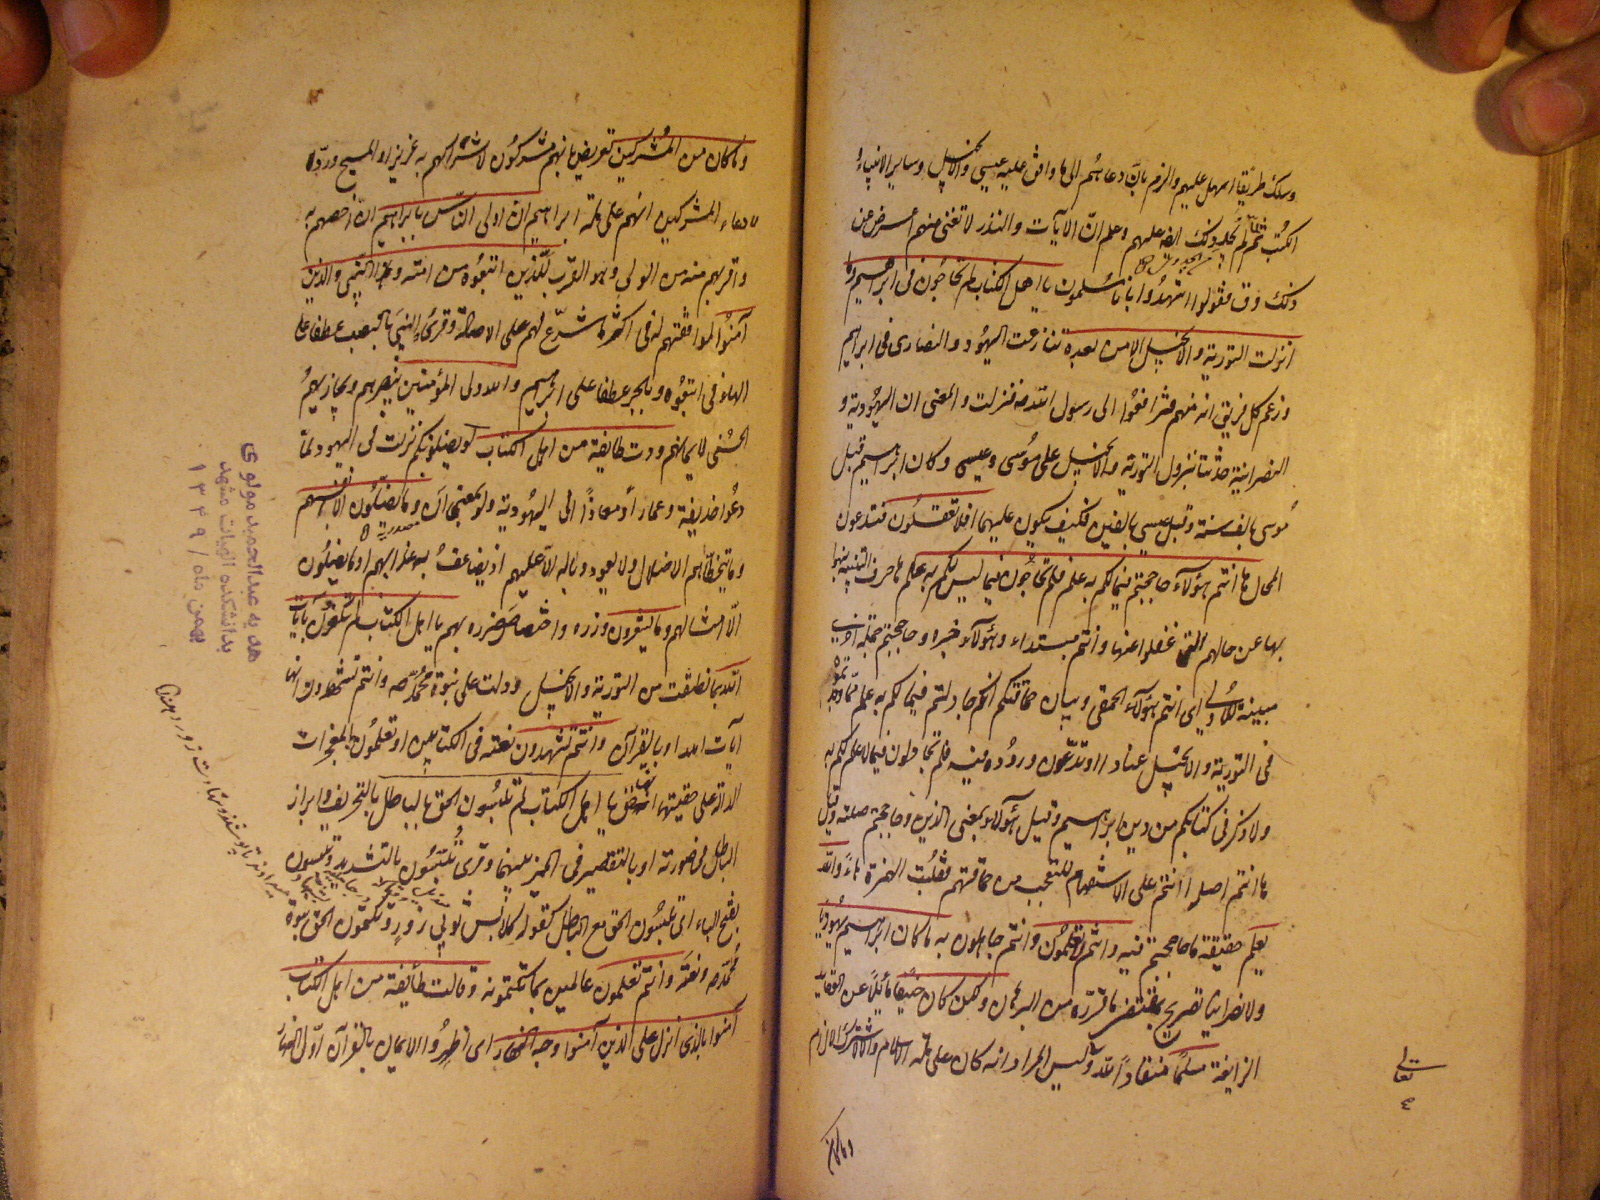 وسلك طريقا اسهل عليهم والزم بان دعاهم الى ما وافق عليه عيسى والانجيل وساير الانبياء
الكتب ثم لم يجد ذلك ايضا عليهم وعلم ان الآيات والنذر لا تغني عنهم اعرض عن
ذلك وق فقولوا اشهدوا بانا مسلمون يا اهل الكتاب لم تحاجون في ابرهيم وما
انزلت التورية والانجيل الا من بعده تنازعت اليهود والنصارى في ابراهيم
وزعم كل فريق انه منهم فترافعوا الى رسول الله صه فنزلت والمعنى ان اليهودية و
النصرانية حدثتا بنزول التورية والانجيل على موسى وعيسى وكان ابرهيم قبل
موسى بالف سنة وقبل عيسى بالفين فكيف يكون عليهما افلا تعقلون فتدعون
المحال ها انتم هؤلاء حاججتم فيما لكم به علم فلم تحاجون فيما ليس لكم به علم ها حرف التنبيه نبهوا
بها عن حالهم التي غفلوا عنها وانتم مبتداء وهؤلاء خبره وحاججتم جملة اخرى
مبينة للاولى اى انتم هؤلاء الحمقى وبيان حماقتكم انكم جادلتم فيما لكم به علم مما وجدتموه
في التورية والانجيل عنادا او تدعون وروده فيه فلم تجادلون فيما لا علم لكم به
ولا ذكر في كتابكم من دين ابرهيم وقيل هؤلاء بمعنى الذين وحاججتم صلته وقيل
ها انتم اصله أأنتم على الاستفهام للتعجب من حماقتهم فقلبت الهمزة هاء والله
يعلم حقيقة ما حاججتم فيه وانتم لا تعلمون وانتم جاهلون به ما كان ابرهيم يهوديا
ولا نصرانيا تصريح بمقتضى ما قرره من البرهان ولكن كان حنيفا مائلا عن العقايد
الزايغة مسلما منقادا لله وليس المراد انه كان على ملة الاسلام والا لاشترك الالزام
تعالى
وما كان
وما كان من المشركين تعريض بانهم مشركون لاشراكهم به عزيزا والمسيح ورد
لادعاء المشركين انهم على ملة ابراهيم ان اولى الناس بابراهيم ان اخصهم به
واقربهم منه من الولى وهو القرب للذين اتبعوه من امته وهذا النبى والذين
آمنوا لموافقتهم له في اكثر ما شرع لهم على الاصالة وقرئ والنبى بالنصب عطفا على
الهاء في اتبعوه وبالجر عطفا على ابرهيم والله ولى المؤمنين ينصرهم ويجازيهم
الحسنى لايمانهم ودت طايفة من اهل الكتاب لو يضلونكم نزلت في اليهود لما
دعوا حذيفة وعمارا ومعاذا الى اليهودية ولو بمعنى ان وما يضلون الا انفسهم
وما يتخطاهم الاضلال ولا يعود وباله الا عليهم اذ يضاعف به عذابهم او ما يضلون
الا امثالهم وما يشعرون وزره واختصاص ضرره بهم يا اهل الكتاب لم تكفرون بآيات
الله بما نطقت من التورية والانجيل ودلت على نبوة محمد صه وانتم تشهدون انها
آيات الله او بالقرآن وانتم تشهدون نعته في الكتابين او تعلمون بالمعجزات
الدالة على حقيتها انه حق يا اهل الكتاب لم تلبسون الحق بالباطل بالتحريف وابراز
الباطل في صورته او بالتقصير في الميز بينهما وقرئ تلبسون بالتشديد وتلبسون
بفتح الباء اى تلبسون الحق مع الباطل كقوله كلابس ثوبي زور وتكتمون الحق نبوة
محمد صه ونعته وانتم تعلمون عالمين بما تكتمونه وقالت طائفة من اهل الكتاب
آمنوا بالذى انزل على الذين آمنوا وجه النهار اى اظهروا الايمان بالقرآن اول النهار
مصدرية
هديه عبدالحميد مولوى
بدانشكده الهيات مشهد
بهمن ماه / ١٣٤٩